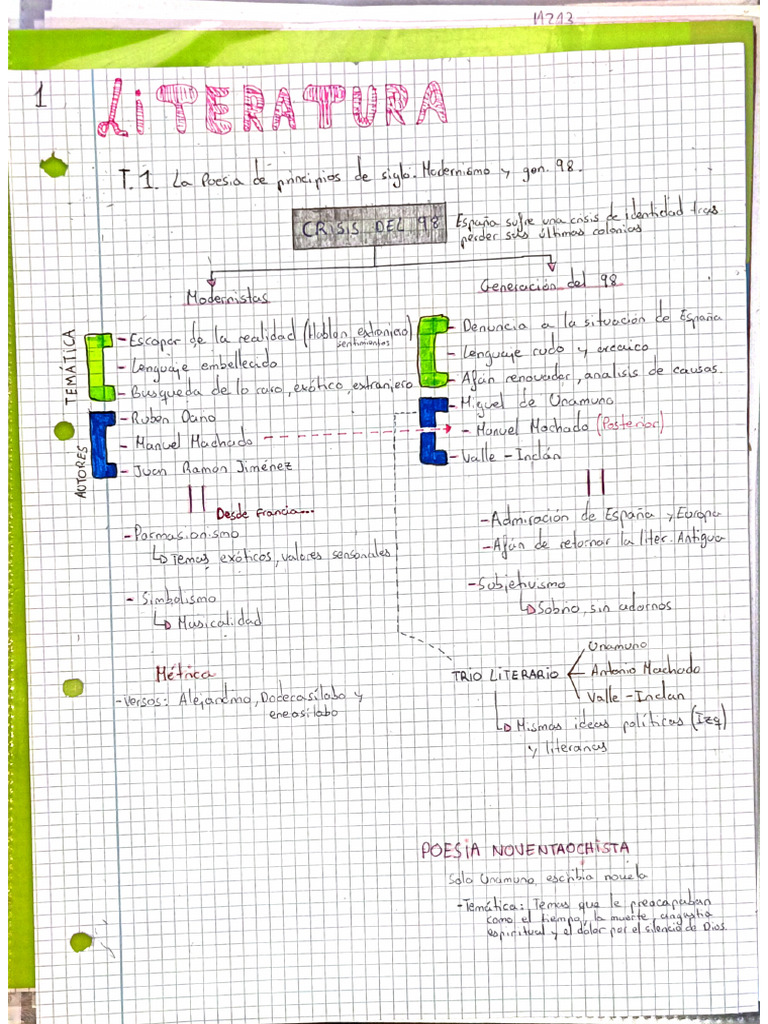 11213
1
LITERATURA
T.1. La Poesia de principios de siglo. Modernismo y gen. 98.
CRISIS DEL 98
España sufre una crisis de identidad tras
perder sus últimas colonias
Modernistas
TEMÁTICA
- Escapar de la realidad (Hablan extranjero)
sentimientos
- Lenguaje embellecido
- Busqueda de lo raro, exótico, extranjero
AUTORES
- Ruben Dario
- Manuel Machado
- Juan Ramon Jiménez
Desde francia...
- Parmasionismo
Temas exóticos, valores sensoriales
- Simbolismo
Musicalidad
Métrica
- Versos: Alejandrino, Dodecasílabo y
eneasílabo
Generación del 98
- Denuncia a la situación de España
- Lenguaje rudo y arcaico
- Afán renovador, analisis de causas.
- Miguel de Unamuno
- Manuel Machado (Posterior)
- Valle - Inclán
- Admiración de España y Europa
- Afán de retornar la liter. Antigua
- Subjetivismo
Sobrio, sin adornos
TRIO LITERARIO
Unamuno
Antonio Machado
Valle - Inclan
Mismas ideas políticas (Izq)
y literarias
POESIA NOVENTAOCHISTA
Solo Unamuno, escribia novela
- Temática: Temas que le preocupaban
como el tiempo, la muerte, angustia
espiritual y el dolor por el silencio de Dios.